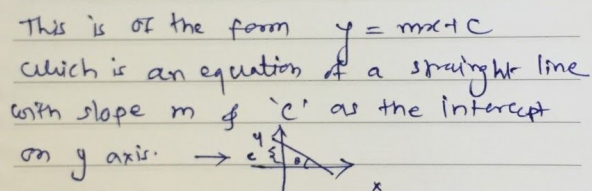 This is of the form y = mx + c
which is an equation of a strainght line
with slope m & 'c' as the intercept
on y axis. → y c θ x